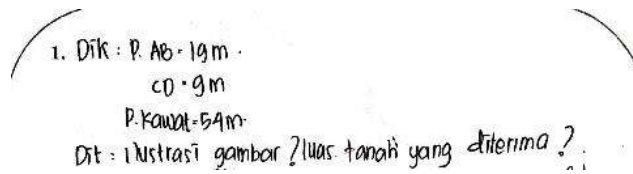 1. Dik : P. AB = 19 m .
CD = 9 m
P. Kawat = 54 m.
Dit : ilustrasi gambar ? luas tanah yang diterima ?